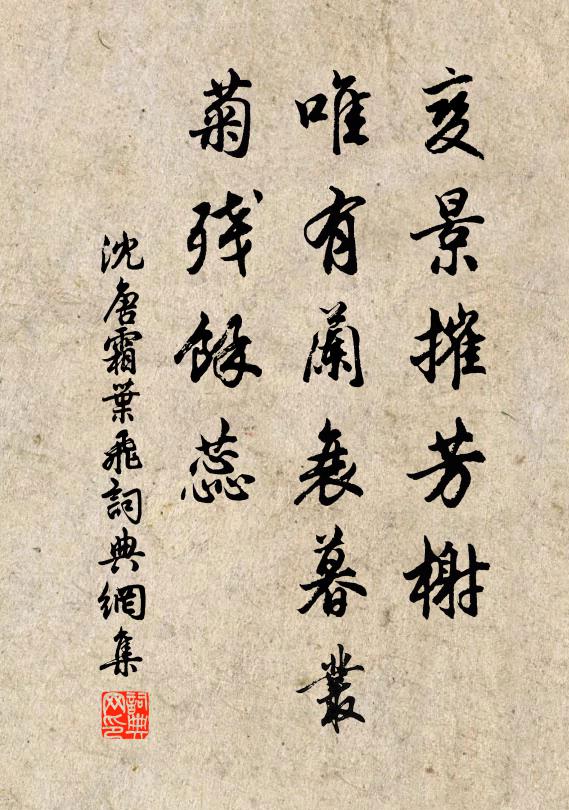 变景摧芳榭
唯有蘭衰暮叢
菊残餘蕊
沈唐霜葉飛詞典網集
詞典網印